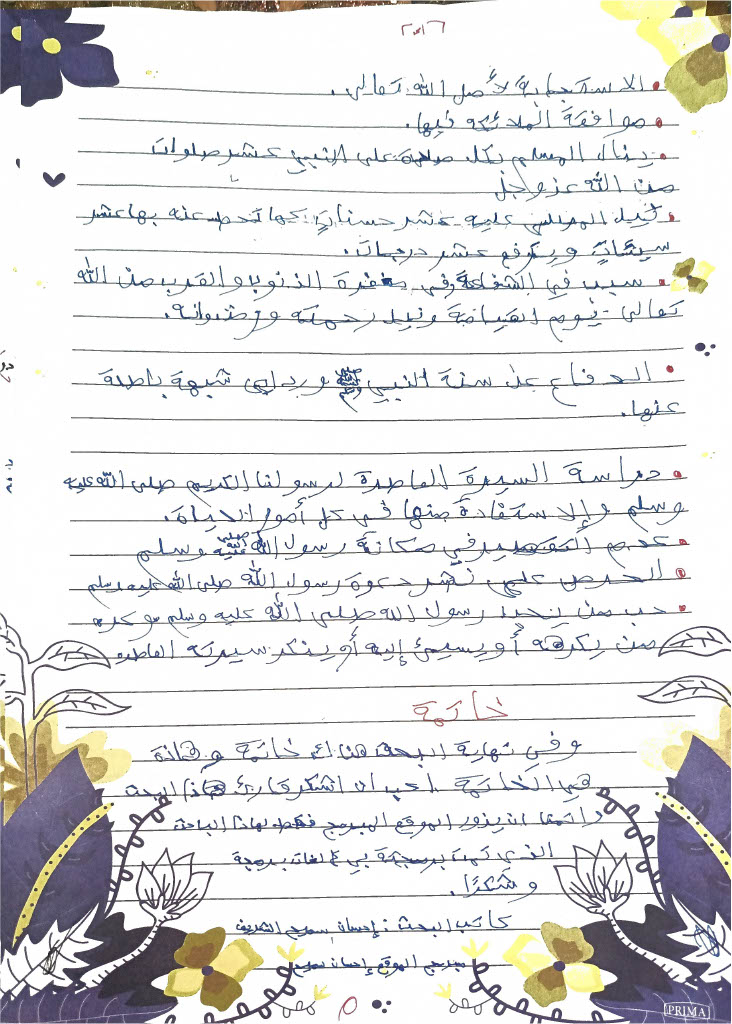 • الاستجابة لأمر الله تعالى.
• موافقة الملائكة فيها.
• ينال المسلم بكل صلاة على النبي عشر صلوات
من الله عز وجل
• نيل المصلي عليه عشر حسنات كما تحط عنه بها عشر
سيئات ويرفع عشر درجات.
• سبب في الشفاعة وفي مغفرة الذنوب والقرب من الله
تعالى يوم القيامة ونيل رحمته ورضوانه.
• الدفاع عن سنة النبي ﷺ ورد أي شبهة باطلة
عنها.
• دراسة السيرة العاطرة لرسولنا الكريم صلى الله عليه
وسلم والإستفادة منها في كل أمور الحياة.
• عدم التقصير في مكانة رسول الله صلى الله عليه وسلم
• الحرص على نشر دعوة رسول الله صلى الله عليه وسلم
• حب من يحب رسول الله صلى الله عليه وسلم وكره
من يكرهه أو يسيئ إليه أو ينكر سيرته العاطره
خاتمة
وفي نهاية البحث هناك خاتمة وهذه
هي الخاتمة احب ان اشكر قارئ هذا البحث
دائما لذي يزور الموقع المبرمج فقط لهذا الباحث
الذي تمت برمجته بي لغات برمجة
وشكرًا.
كاتب البحث : إحسان سميح الشريف
مبرمج الموقع إحسان سميح
٥
PRIMA